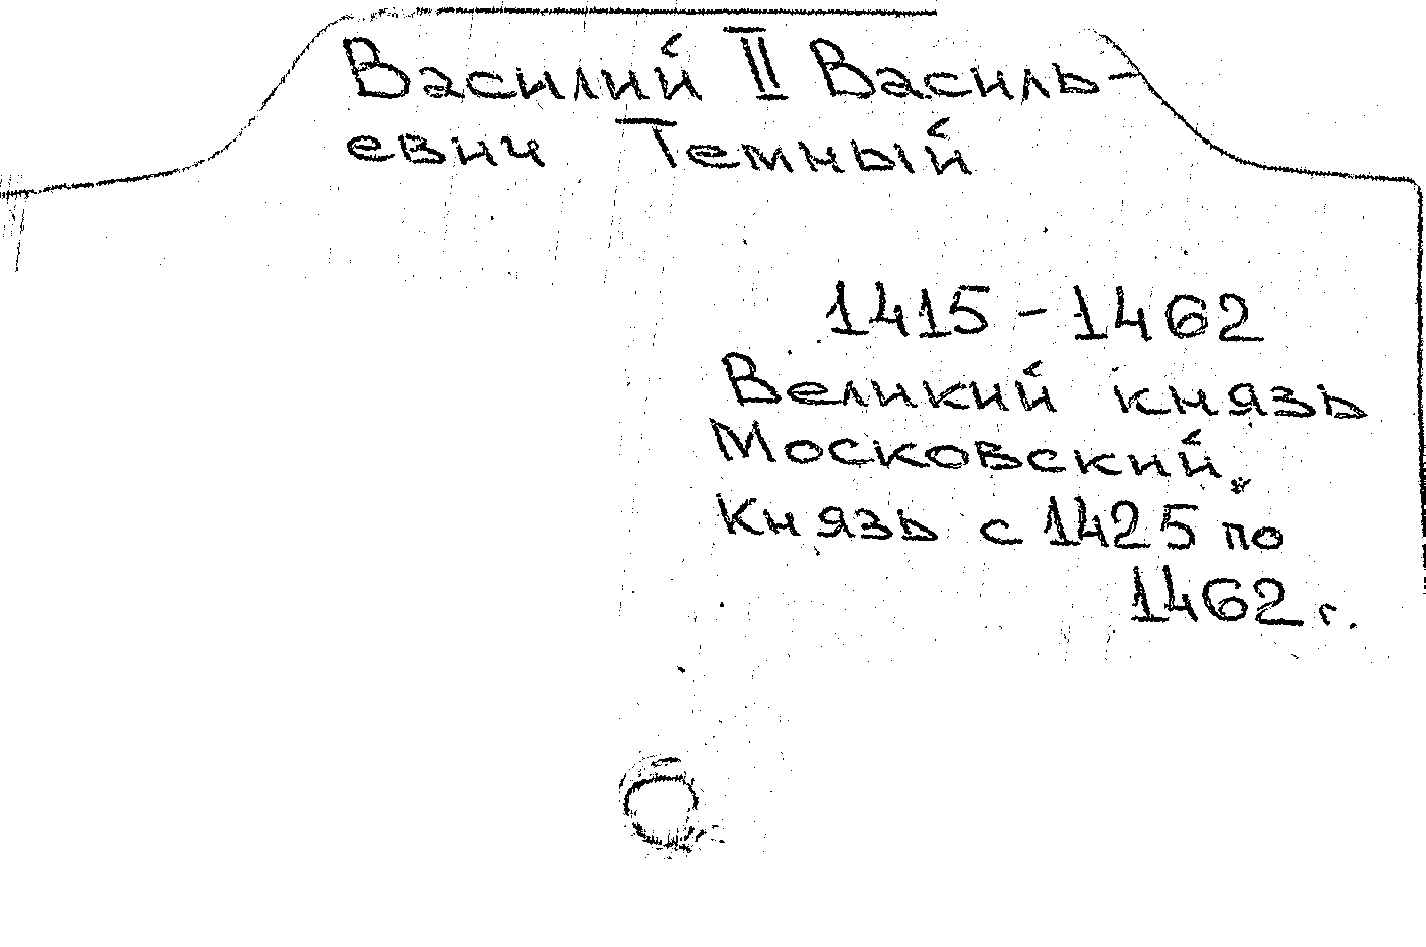 Василий II Василь-
евич Темный
1415 - 1462
Великий князь
Московский.
Князь с 1425 по
1462 г.